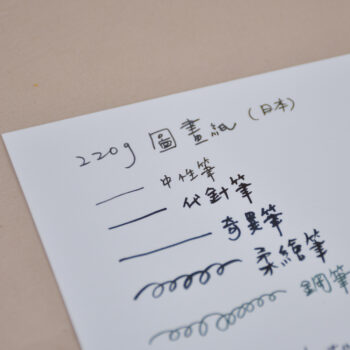 220g 圖畫紙 (日本)
中性筆
代針筆
奇異筆
柔繪筆
鋼筆